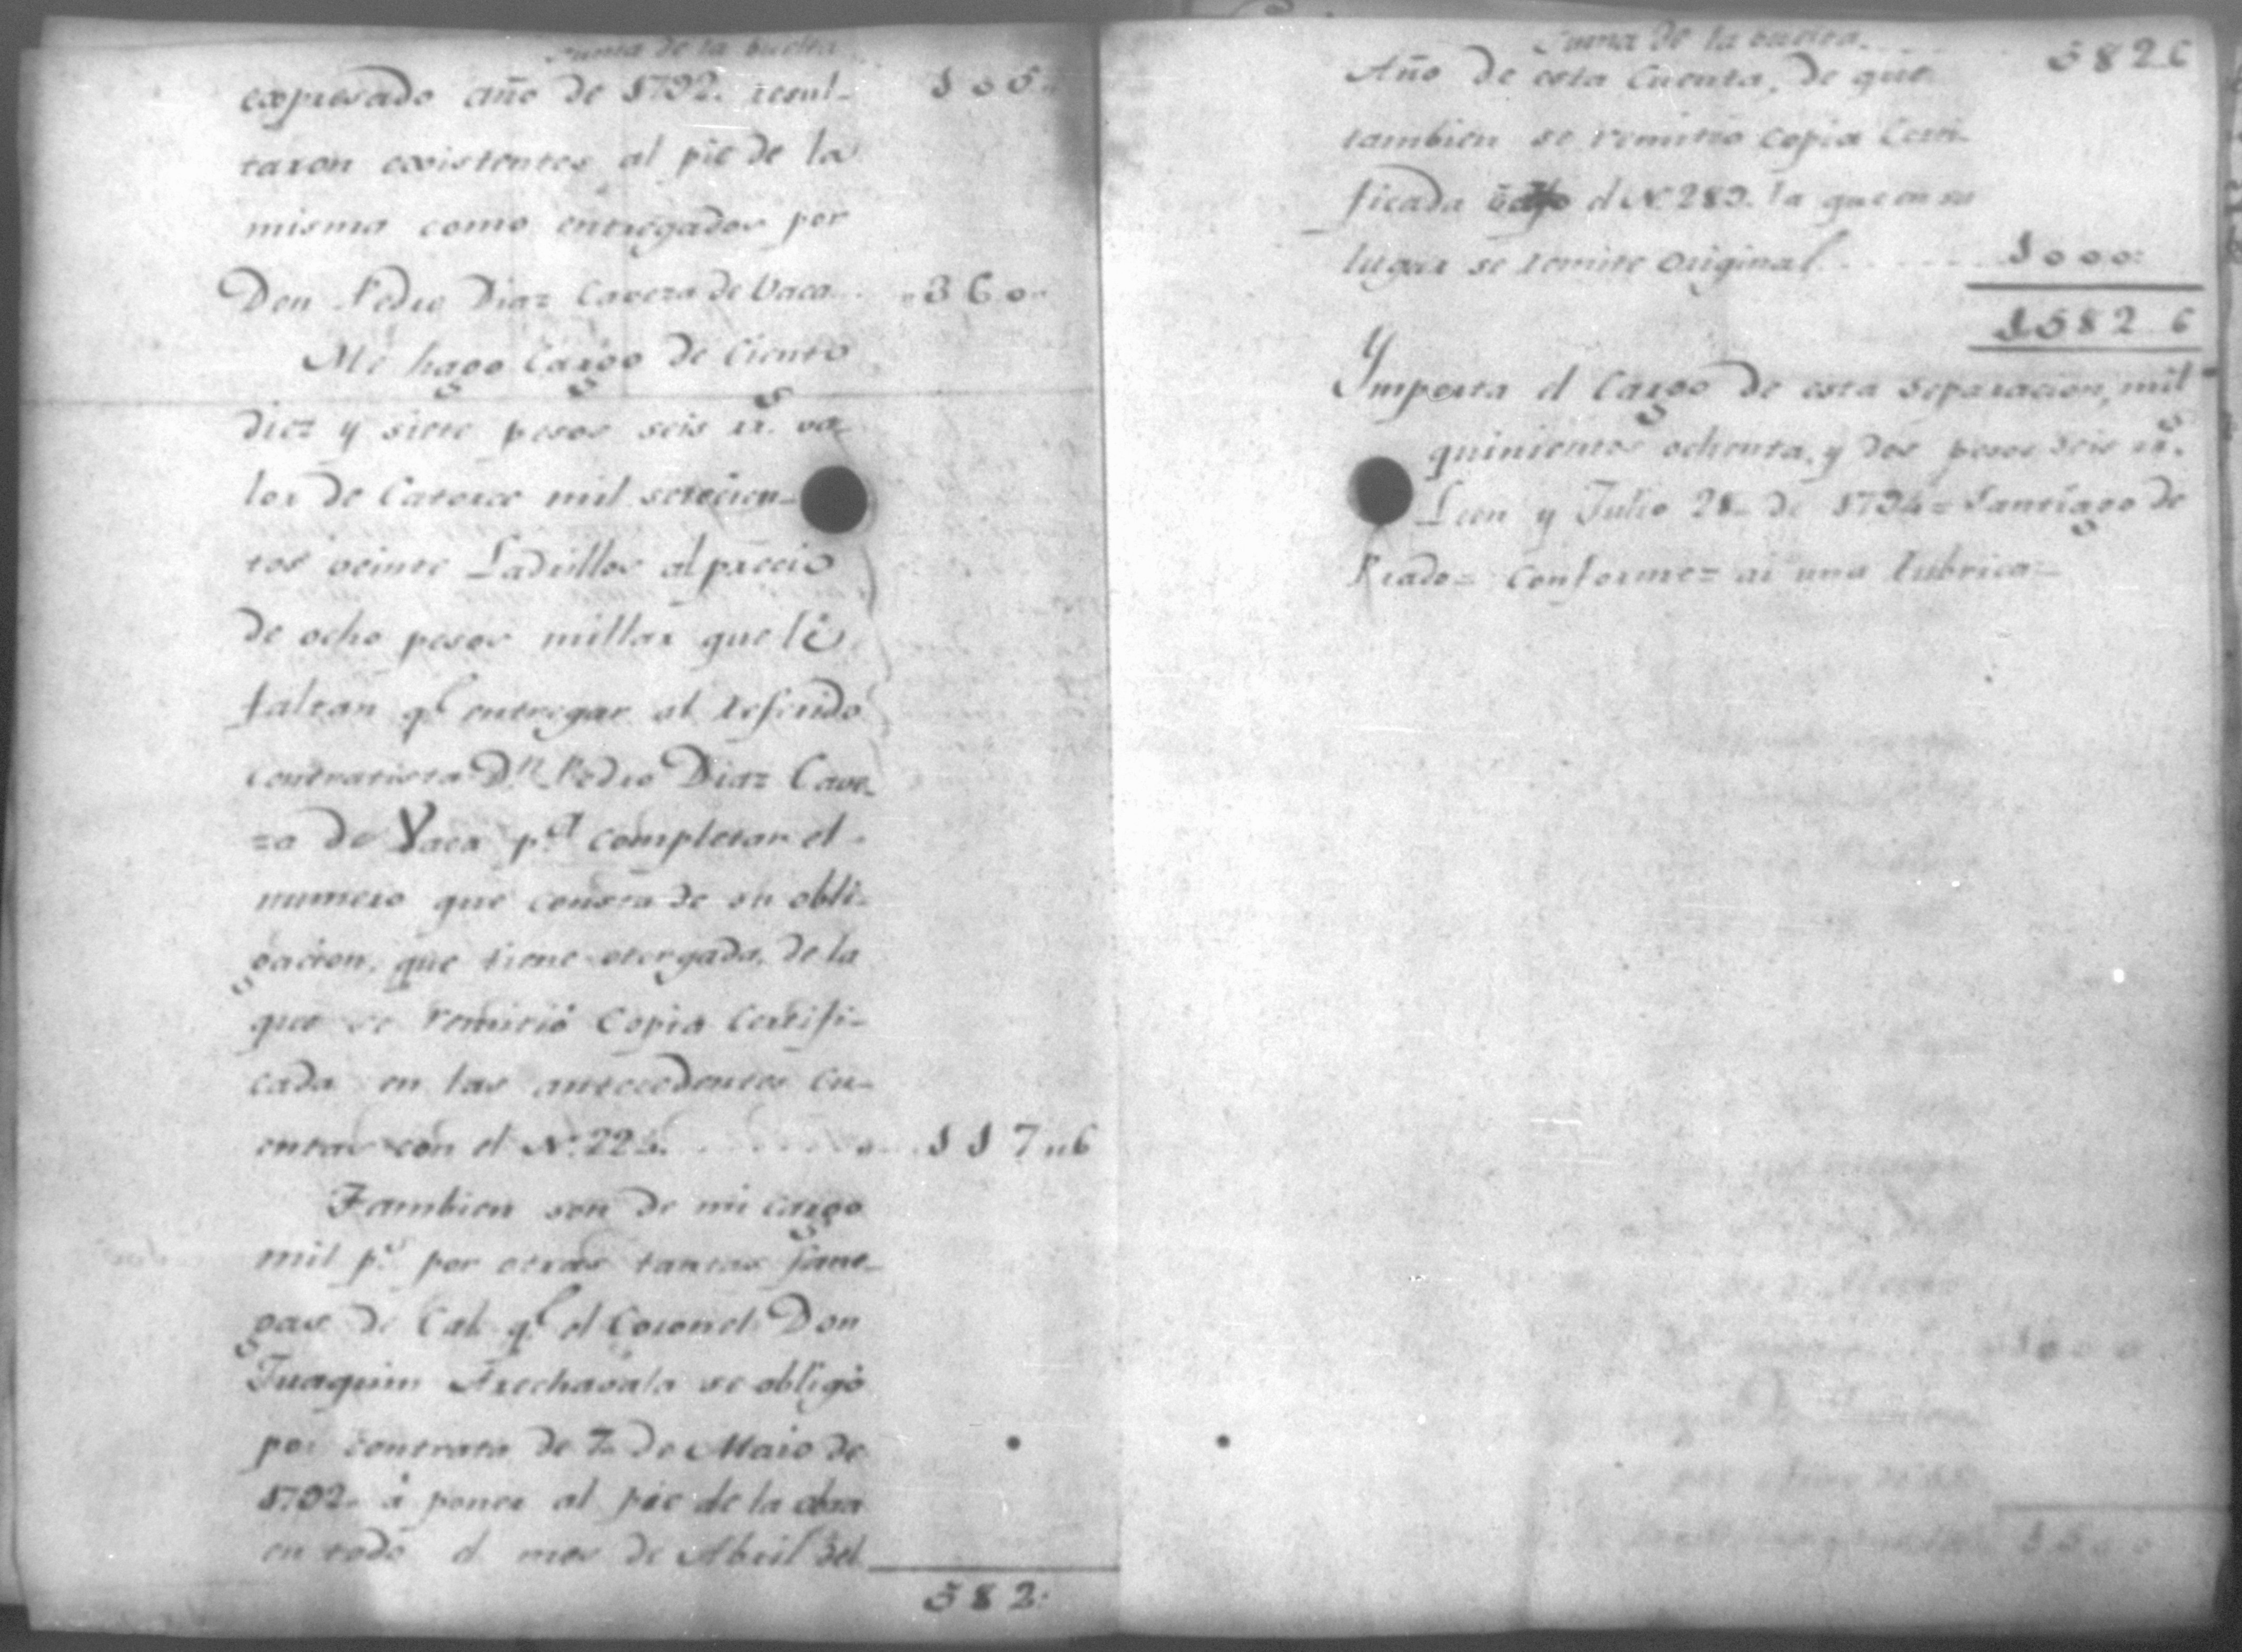 Suma de la buelta
expresado año de 1792. resul- 105"
taron existentes al pie de la
misma como entregados por
Don Pedro Diaz Caveza de Vaca.. "360"
Me hago Cargo de Ciento
diez y siete pesos seis rr. va-
lor de Catorce mil setecien-
tos veinte Ladrillos al precio
de ocho pesos millar que le
faltan qe entregar al referido
contratista Dn Pedro Diaz Cave-
za de Vaca pa completar el
numero que consta de su obli-
gacion, que tiene otorgada, de la
que se remitió Copia Certifi-
cada en las antecedentes cu-
entas con el No. 224. 117"6
Tambien son de mi cargo
mil ps por otras tantas fane-
gas de Cal qe el Coronel Don
Juaquin Arechavala se obligó
por contrata de 7 de Maio de
1792. á poner al pie de la obra
en todo el mes de Abril del
582"
Suma de la buelta 582 6
Año de esta Cuenta, de que
tambien se remitio copia Certi-
ficada bajo el No. 289. la que en su
lugar se remite original 1000"
1582 6
Ymporta el Cargo de esta separacion, mil
quinientos ochenta, y dos pesos seis rr.
Leon y Julio 28 de 1794 = Santiago de
Prado = Conforme = ai una rubrica =